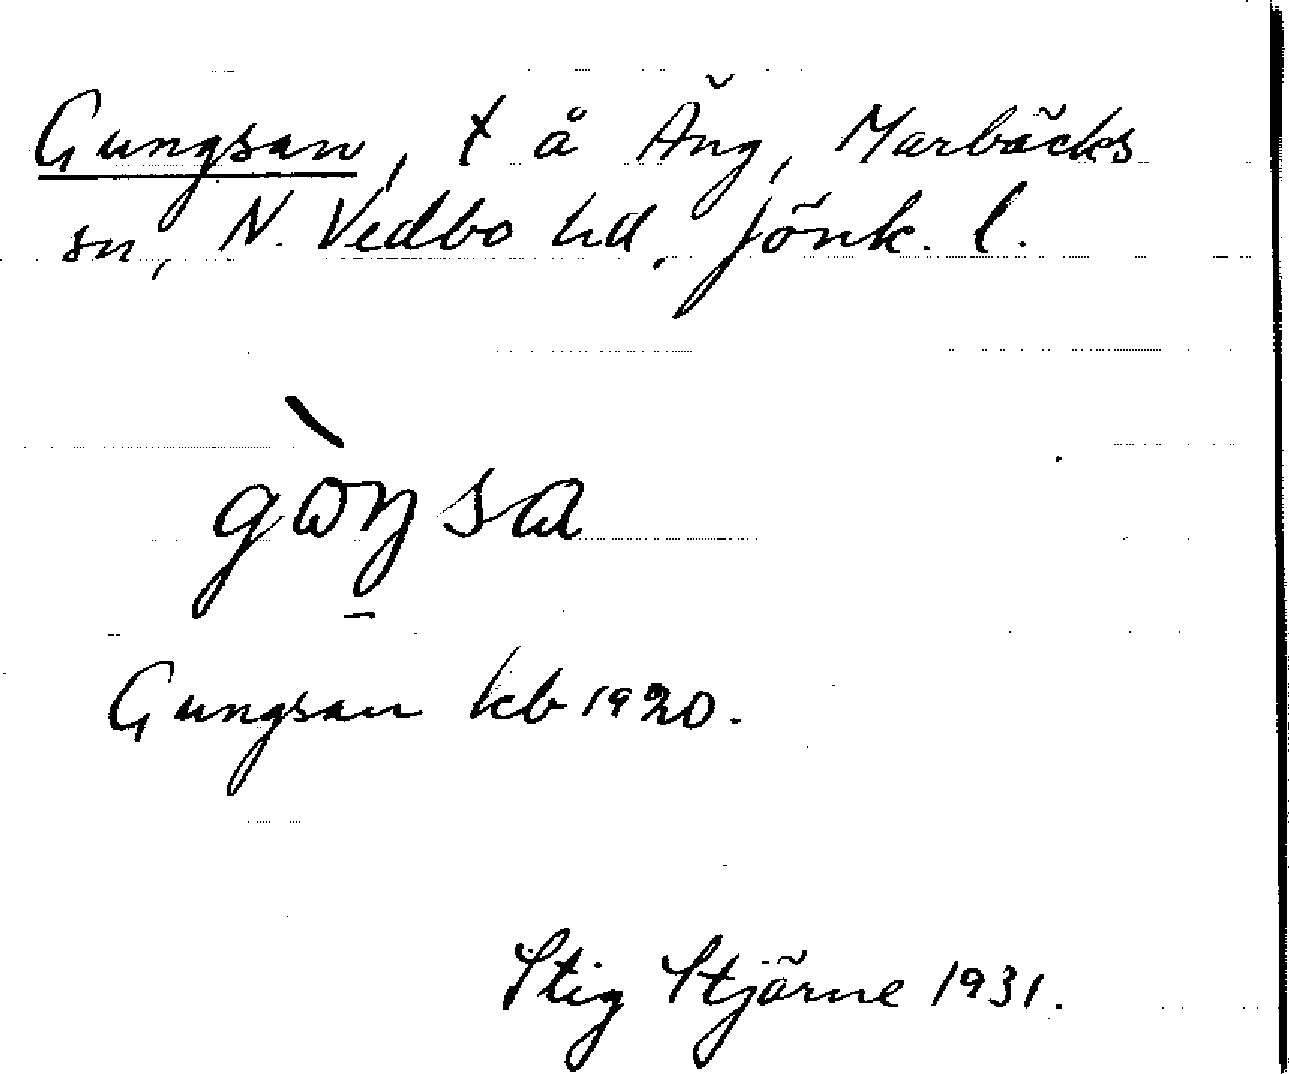 Gungsan, t å Äng, Marbäcks
sn, N. Vedbo hd, Jönk. l.
gɷ̀ŋsa
Gungsan kb 1920.
Stig Stjärne 1931.